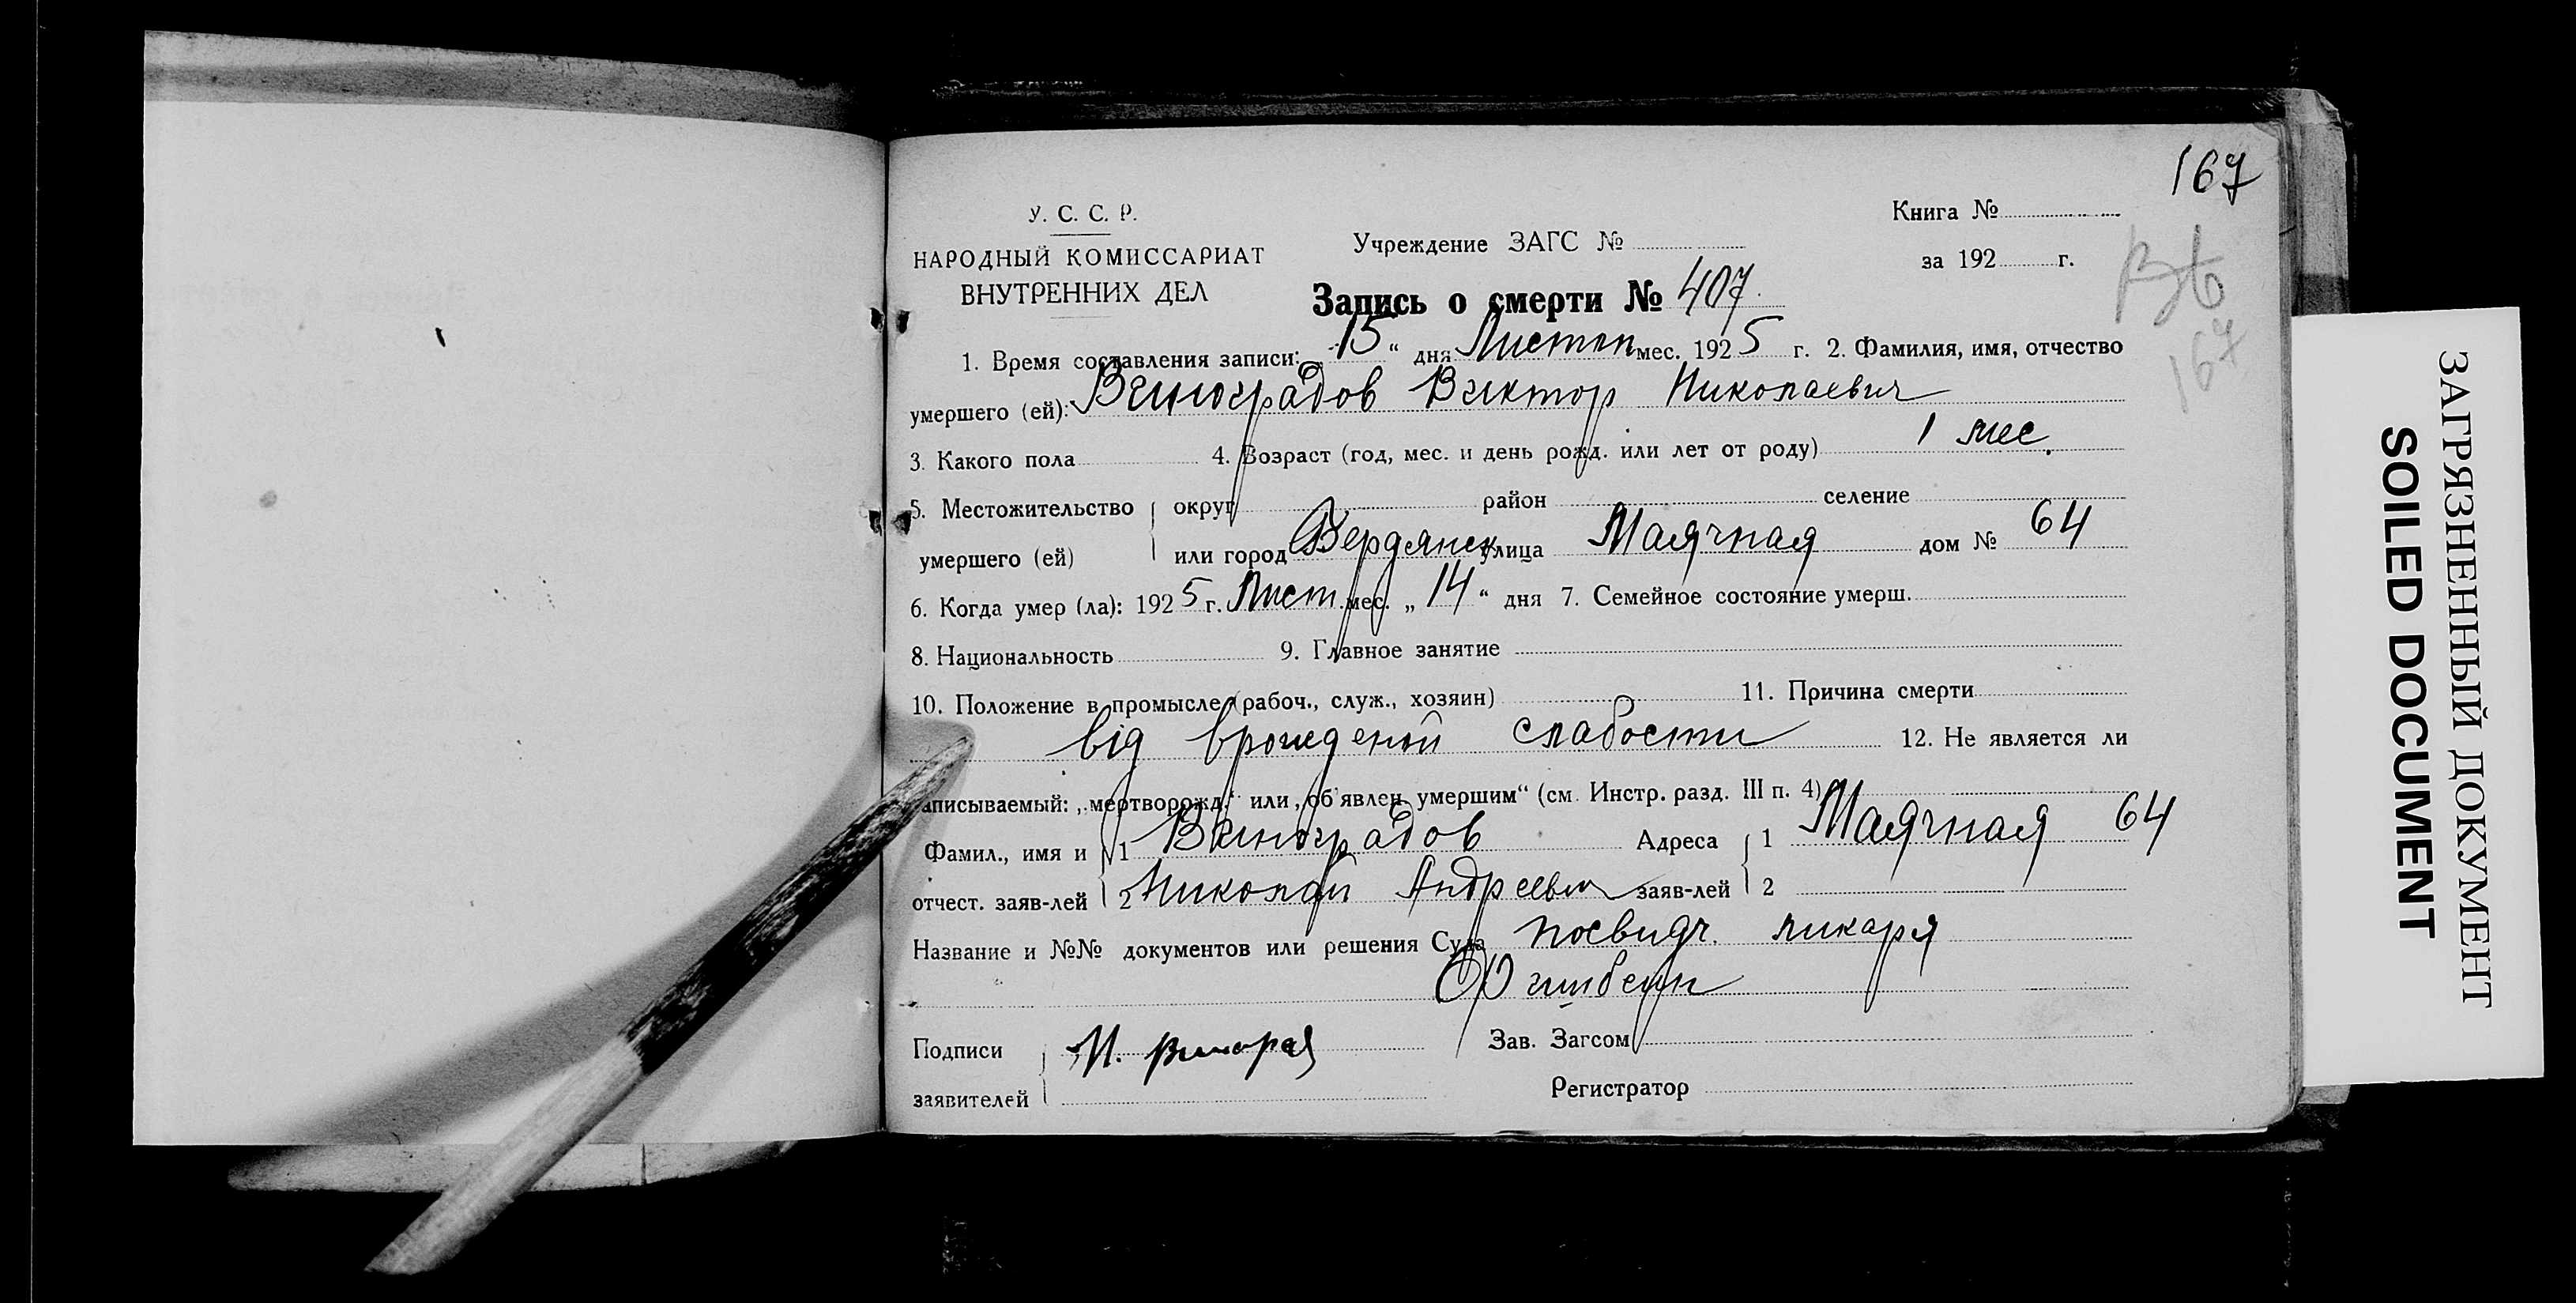 167
У. С. С. Р.
НАРОДНЫЙ КОМИССАРИАТ
ВНУТРЕННИХ ДЕЛ
Учреждение ЗАГС №
Книга №
за 192 г.
Запись о смерти № 407
167
1. Время составления записи: „15“ дня Листоп мес. 1925 г. 2. Фамилия, имя, отчество
умершего (ей): Виноградов Виктор Николаевич
3. Какого пола 4. Возраст (год, мес. и день рожд. или лет от роду) 1 мес.
5. Местожительство умершего (ей) округ район селение
или город Бердянск улица Маячная дом № 64
6. Когда умер (ла): 1925 г. Лист. мес. „14“ дня 7. Семейное состояние умерш.
8. Национальность 9. Главное занятие
10. Положение в промысле (рабоч., служ., хозяин) 11. Причина смерти
від врожденой слабости 12. Не является ли
записываемый: „мертворожд.“ или „об'явлен. умершим“ (см. Инстр. разд. III п. 4)
Фамил., имя и 1 Виноградов Адреса 1 Маячная 64
отчест. заяв-лей 2 Николай Андреевич заяв-лей 2
Название и №№ документов или решения Суда посвидч. ликаря
Подписи Зав. Загсом
заявителей Регистратор
ЗАГРЯЗНЕННЫЙ ДОКУМЕНТ
SOILED DOCUMENT